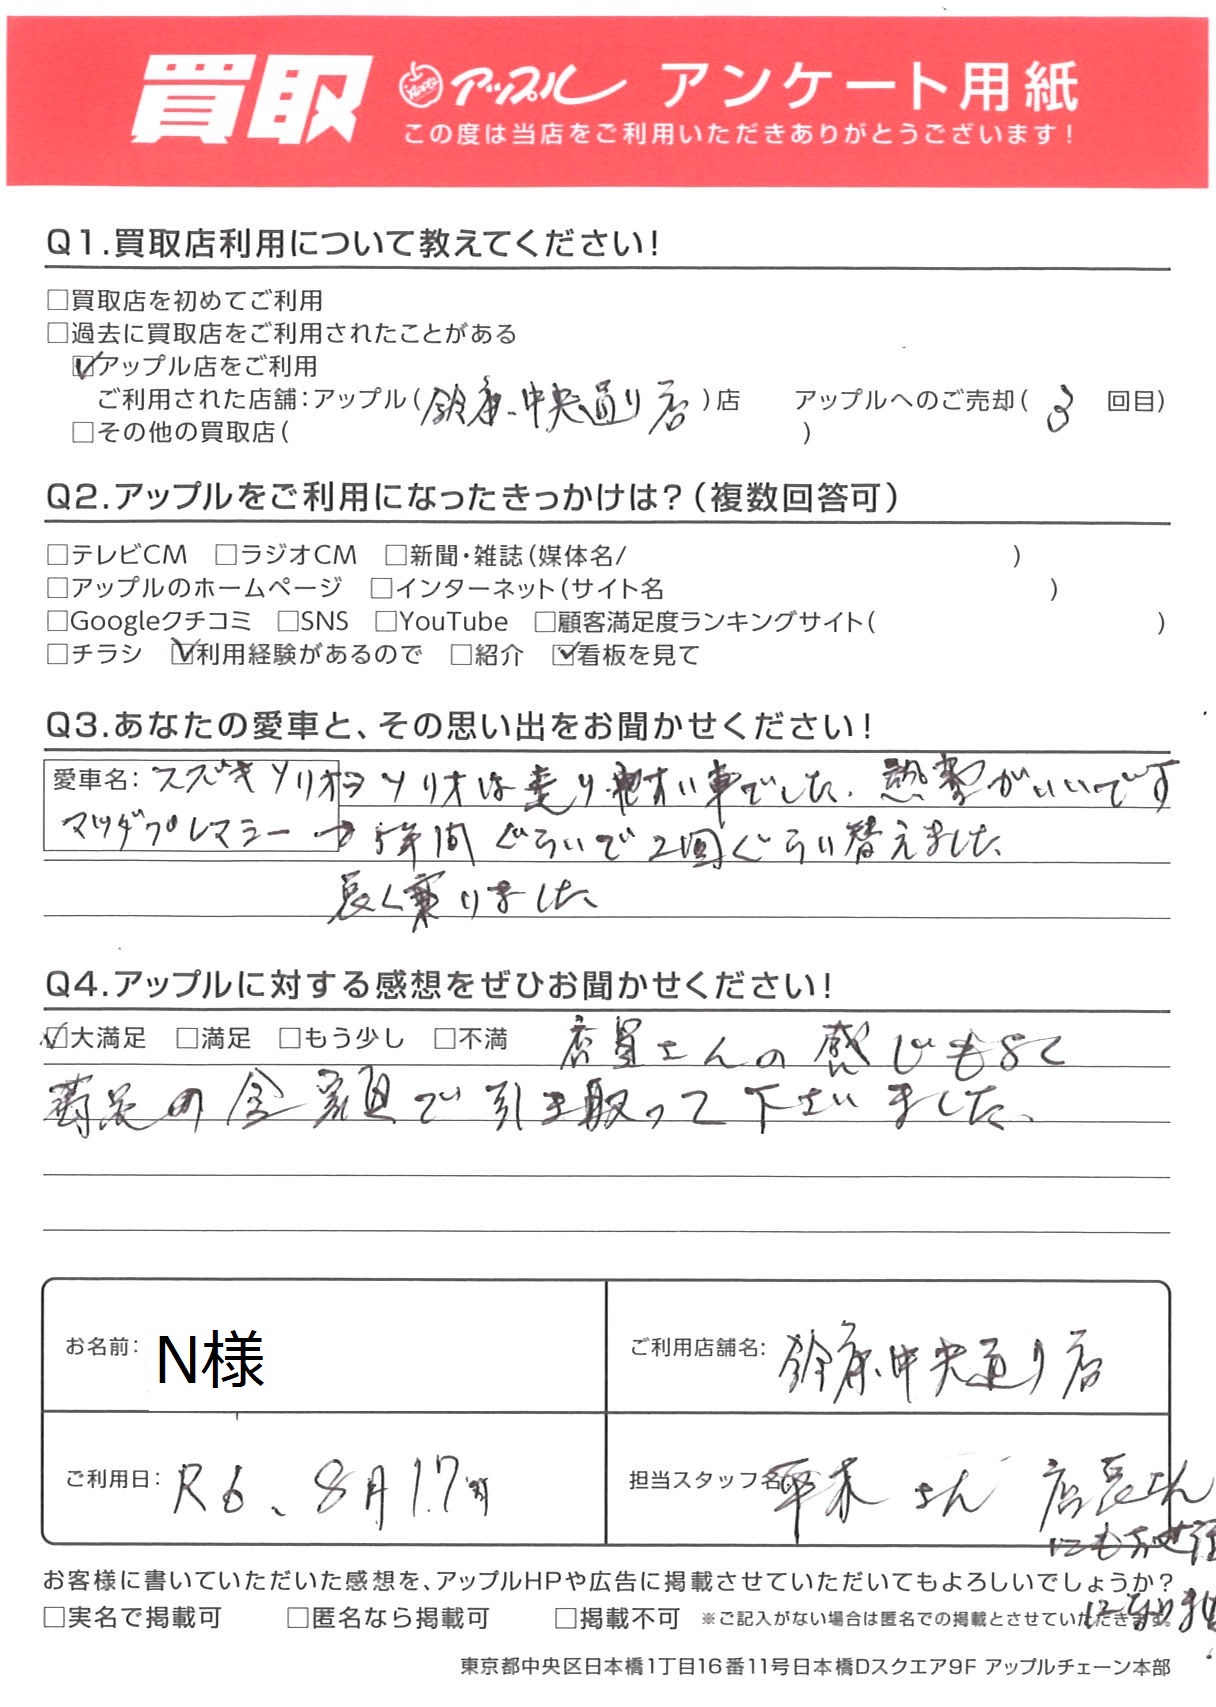 買取 アップル アンケート用紙
この度は当店をご利用いただきありがとうございます!
Q1.買取店利用について教えてください!
□買取店を初めてご利用
□過去に買取店をご利用されたことがある
☑アップル店をご利用
ご利用された店舗:アップル(鈴鹿中央通り店)店 アップルへのご売却(3回目)
□その他の買取店( )
Q2.アップルをご利用になったきっかけは?(複数回答可)
□テレビCM □ラジオCM □新聞・雑誌(媒体名/ )
□アップルのホームページ □インターネット(サイト名 )
□Googleクチコミ □SNS □YouTube □顧客満足度ランキングサイト( )
□チラシ ☑利用経験があるので □紹介 ☑看板を見て
Q3.あなたの愛車と、その思い出をお聞かせください!
愛車名:スズキソリオ→ソリオは走り易すい車でした。燃費がいいです
マツダプレマシー→5年間ぐらいで2回ぐらい替えました
良く乗りました
Q4.アップルに対する感想をぜひお聞かせください!
☑大満足 □満足 □もう少し □不満 店員さんの感じもよく
満足の金額で引き取って下さいました。
お名前:N様 ご利用店舗名:鈴鹿中央通り店
ご利用日:R6、8月17 担当スタッフ名: さん 店長さん
にもお世話
になりま
お客様に書いていただいた感想を、アップルHPや広告に掲載させていただいてもよろしいでしょうか?
□実名で掲載可 □匿名なら掲載可 □掲載不可 ※ご記入がない場合は匿名での掲載とさせていただきます。
東京都中央区日本橋1丁目16番11号日本橋Dスクエア9F アップルチェーン本部